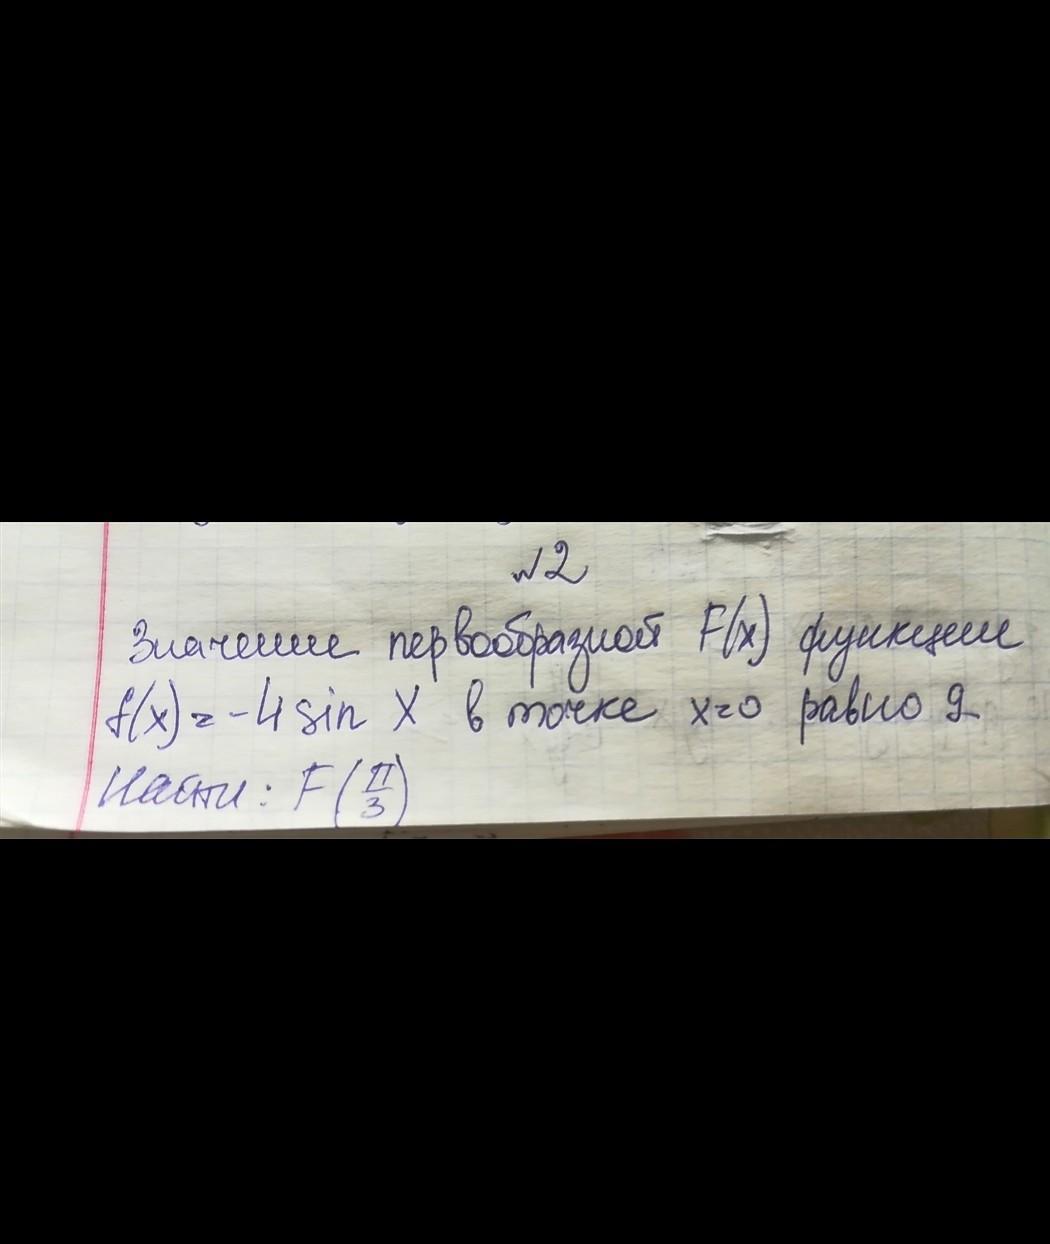 №2
Значение первообразной F(x) функции
f(x)=-4 sin x в точке x=0 равно 9
Найти: F(π/3)